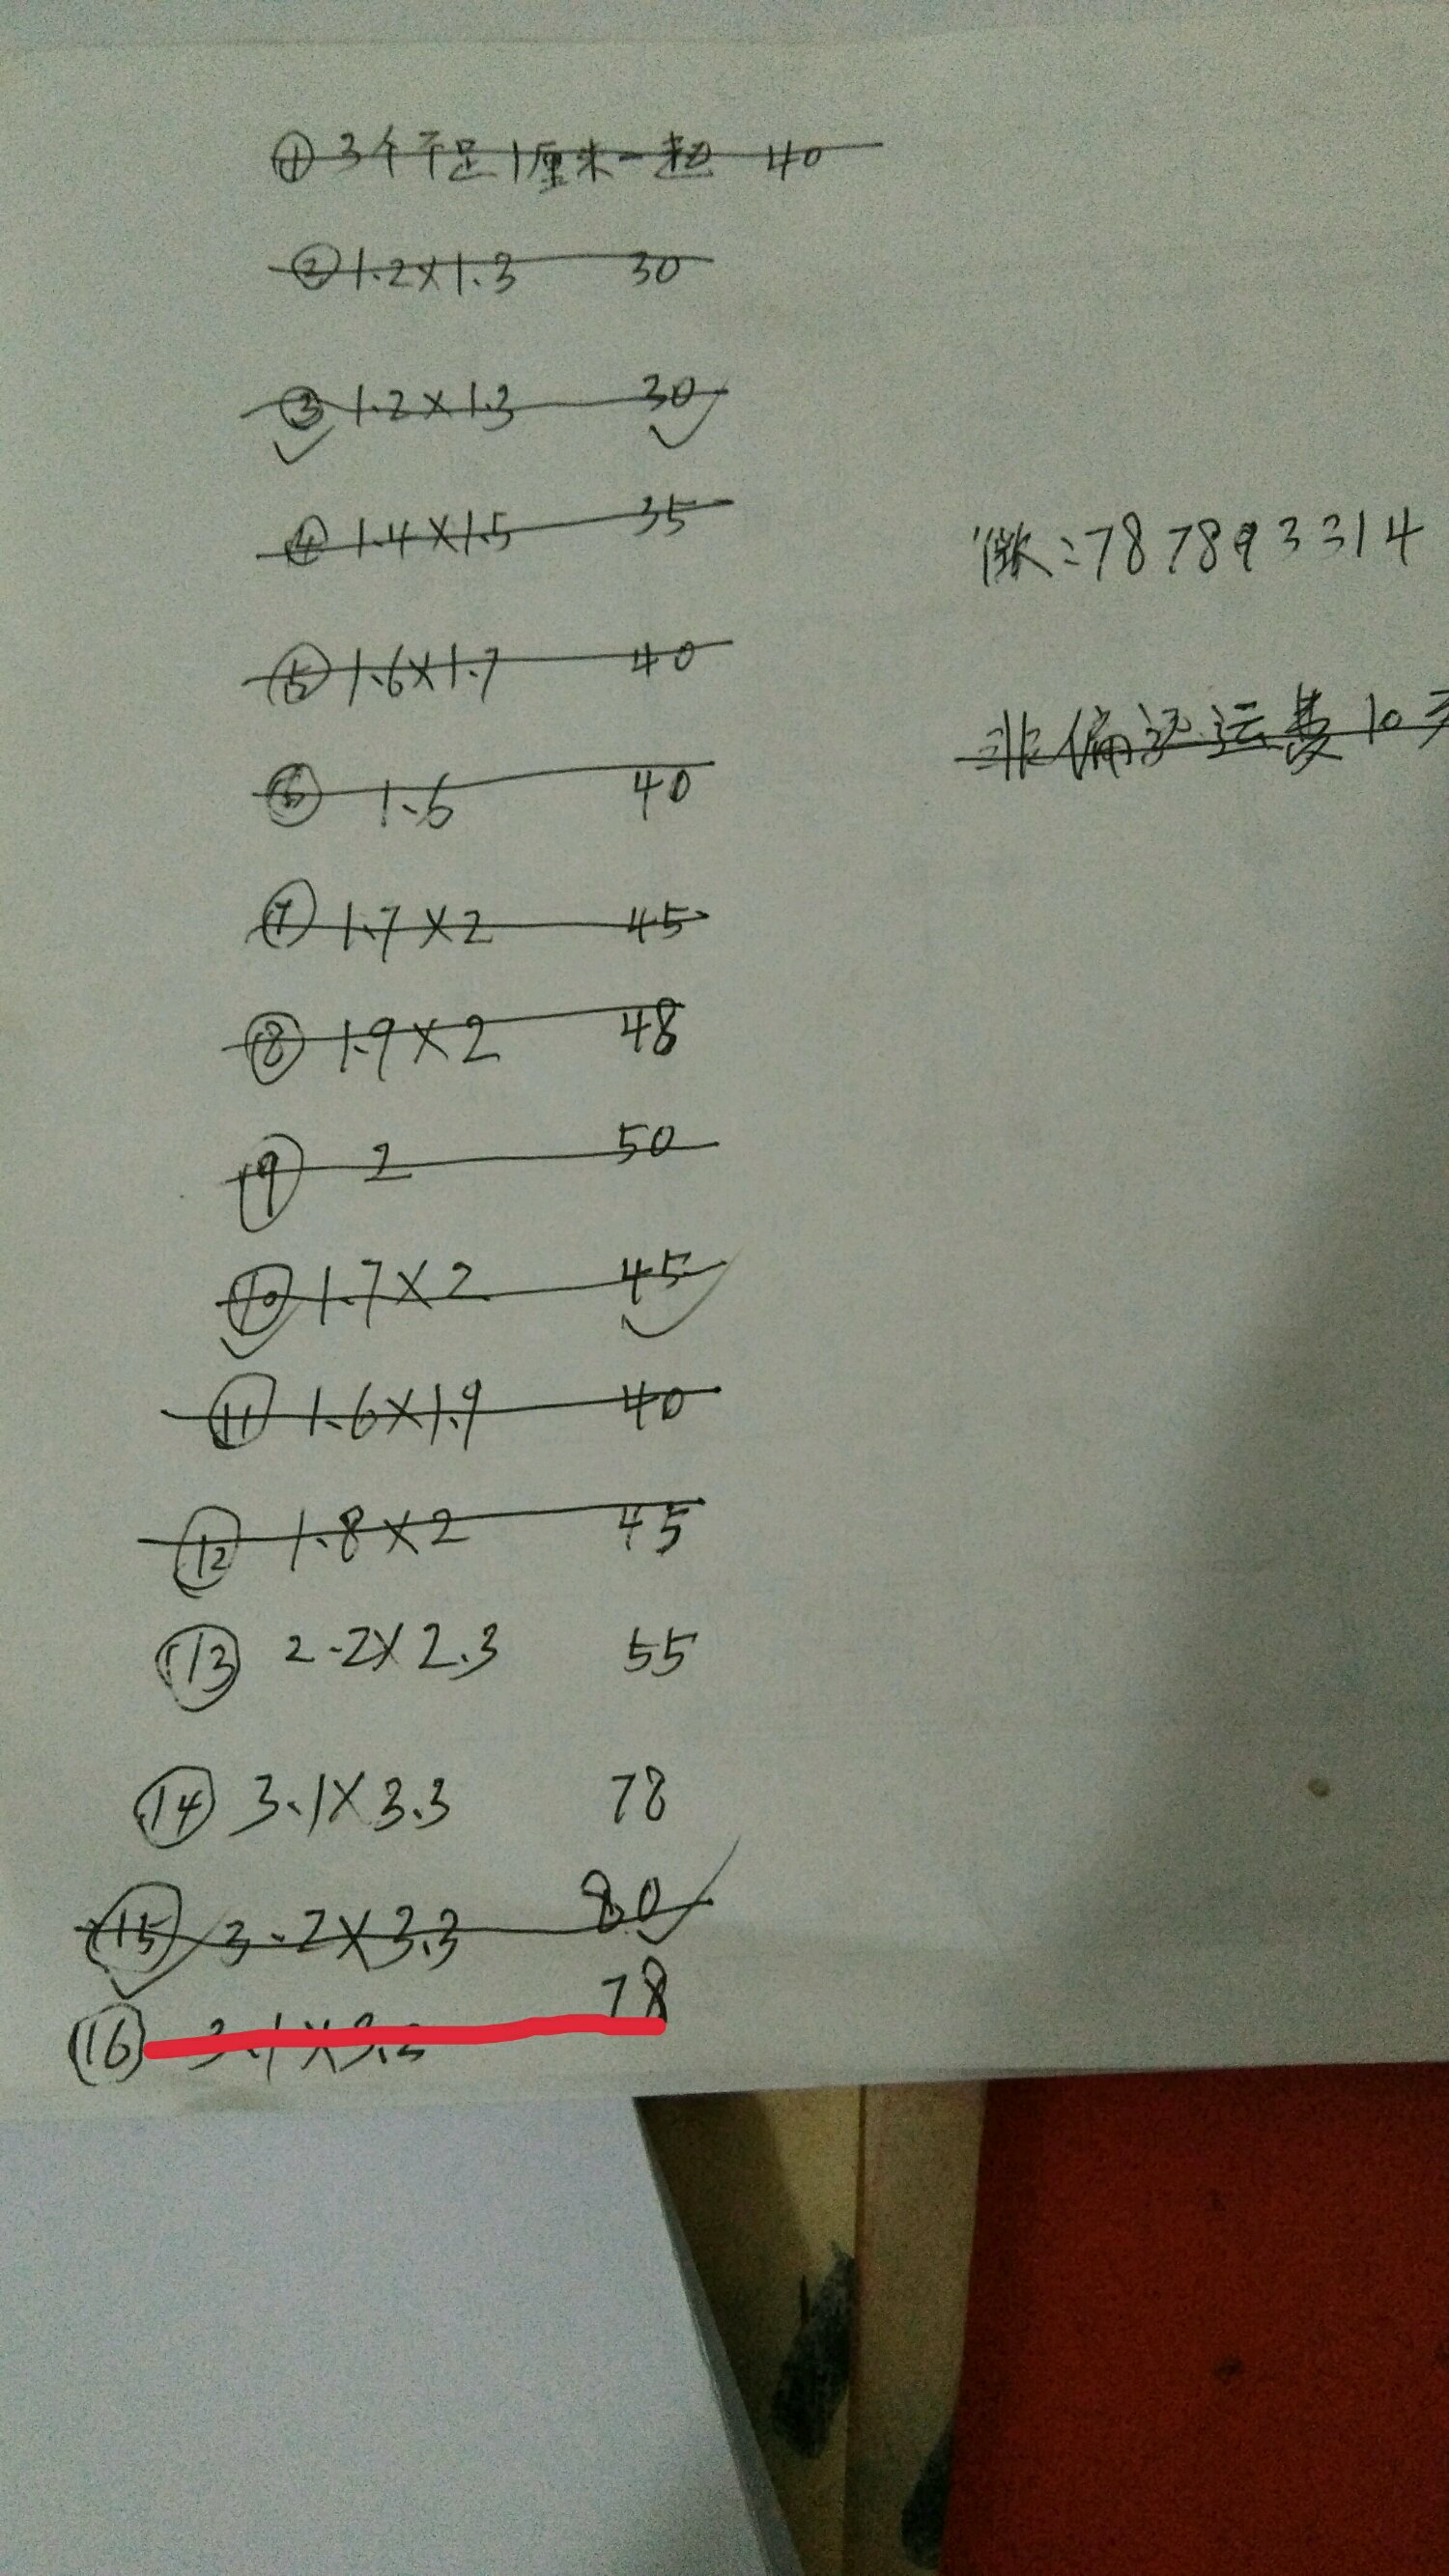 ① 3个不足1厘米一起 40
② 1.2×1.3 30
③ 1.2×1.3 30
④ 1.4×1.5 35
⑤ 1.6×1.7 40
⑥ 1.6 40
⑦ 1.7×2 45
⑧ 1.9×2 48
⑨ 2 50
⑩ 1.7×2 45
⑪ 1.6×1.9 40
⑫ 1.8×2 45
⑬ 2.2×2.3 55
⑭ 3.1×3.3 78
⑮ 3.2×3.3 80
⑯ 3.1× 78
微:787893314
非偏远运费10